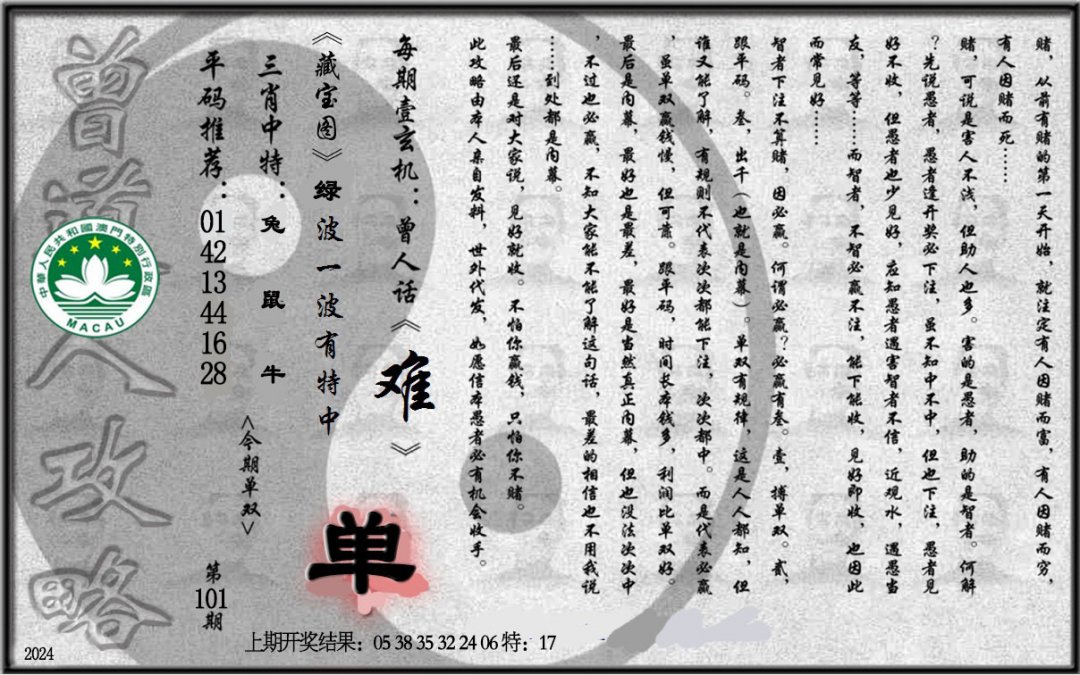 赌，从前有赌的第一天开始，就注定有人因赌而富，有人因赌而穷，
有人因赌而死……
赌，可说是害人不浅，但助人也多。害的是愚者，助的是智者。何解
？先说愚者，愚者逢开奖必下注，虽不知中不中，但也下注，愚者见
好不收，但愚者也少见好，应知愚者遇害智者不信，近观水，遇愚当
友，等等……而智者，不智必赢不注，能下能收，见好即收，也因此
而常见好……
智者下注不算赌，因必赢。何谓必赢？必赢有叁。壹，搏单双。贰，
跟平码。叁，出千（也就是内幕）。单双有规律，这是人人都知，但
谁又能了解，有规则不代表次次都能下注，次次都中。而是代表必赢
，虽单双赢钱慢，但可靠。跟平码，时间长本钱多，利润比单双好。
最后是内幕，最好也是最差，最好是当然真正内幕，但也没法次次中
，不过也必赢，不知大家能不能了解这句话，最差的相信也不用我说
……到处都是内幕。
最后还是对大家说，见好就收。不怕你赢钱，只怕你不赌。
此攻略由本人亲自发料，世外代发，如愿信本愚者必有机会收手。
每期壹玄机：曾人话《难》
《藏宝图》绿波一波有特中
单
三肖中特：兔 鼠 牛
<今期单双>
平码推荐：01 42 13 44 16 28
第101期
曾道人攻略
中華人民共和國澳門特別行政區
MACAU
上期开奖结果：05 38 35 32 24 06 特：17
2024